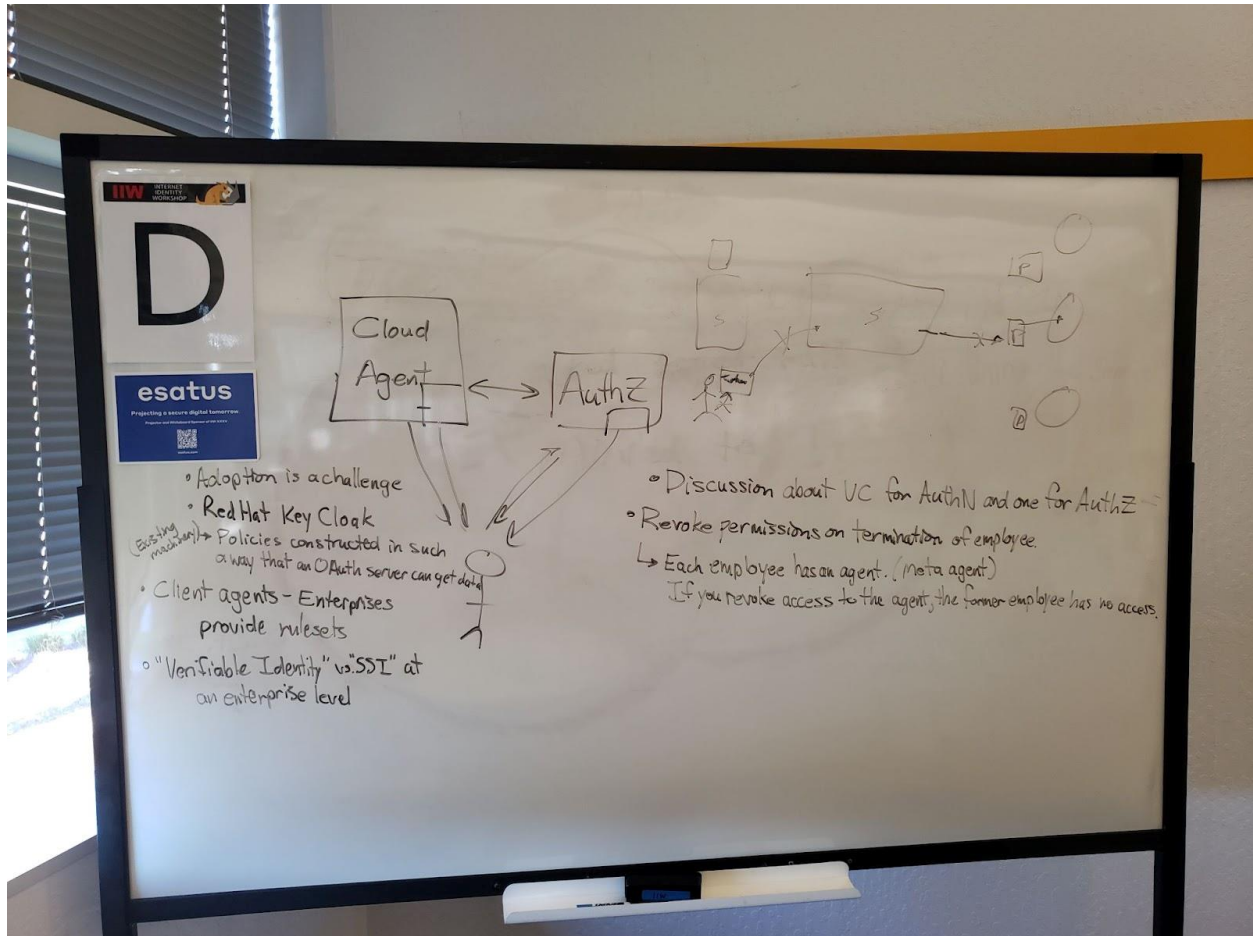 IIW INTERNET
IDENTITY
WORKSHOP
D
esatus
Projecting a secure digital tomorrow.
Cloud
Agent
AuthZ
S
S
P
P
P
• Adoption is a challenge
• RedHat Key Cloak
(Existing machinery) ↳ Policies constructed in such
a way that an OAuth server can get data
• Client agents - Enterprises
provide rulesets
• "Verifiable Identity" vs. "SSI" at
an enterprise level
• Discussion about VC for AuthN and one for AuthZ
• Revoke permissions on termination of employee.
↳ Each employee has an agent. (meta agent)
If you revoke access to the agent, the former employee has no access.